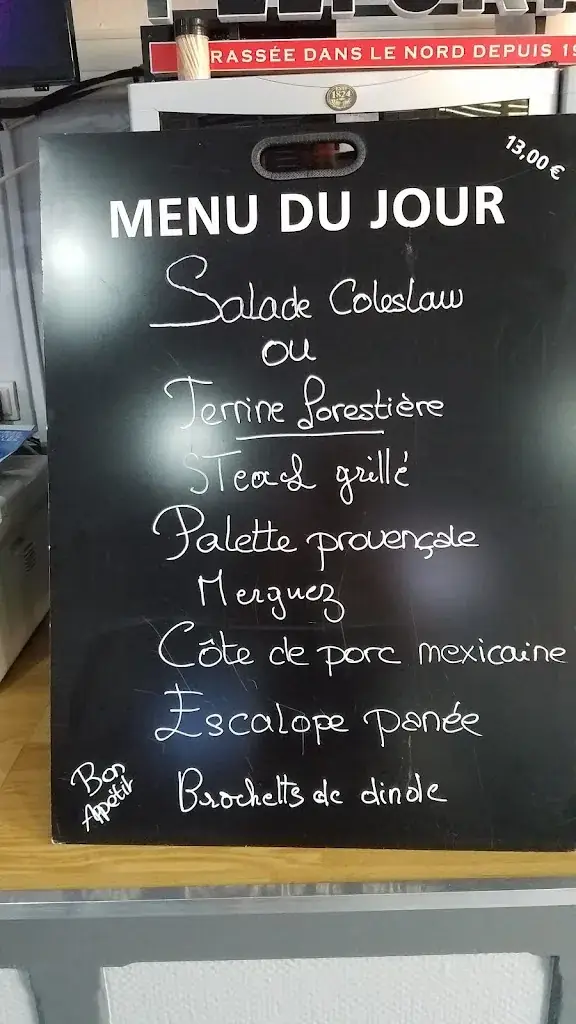 RASSÉE DANS LE NORD DEPUIS 19
1824
13,00 €
MENU DU JOUR
Salade Coleslaw
ou
Terrine forestière
STeack grillé
Palette provençale
Merguez
Côte de porc mexicaine
Escalope panée
Brochetts de dinde
Bon
Appétit